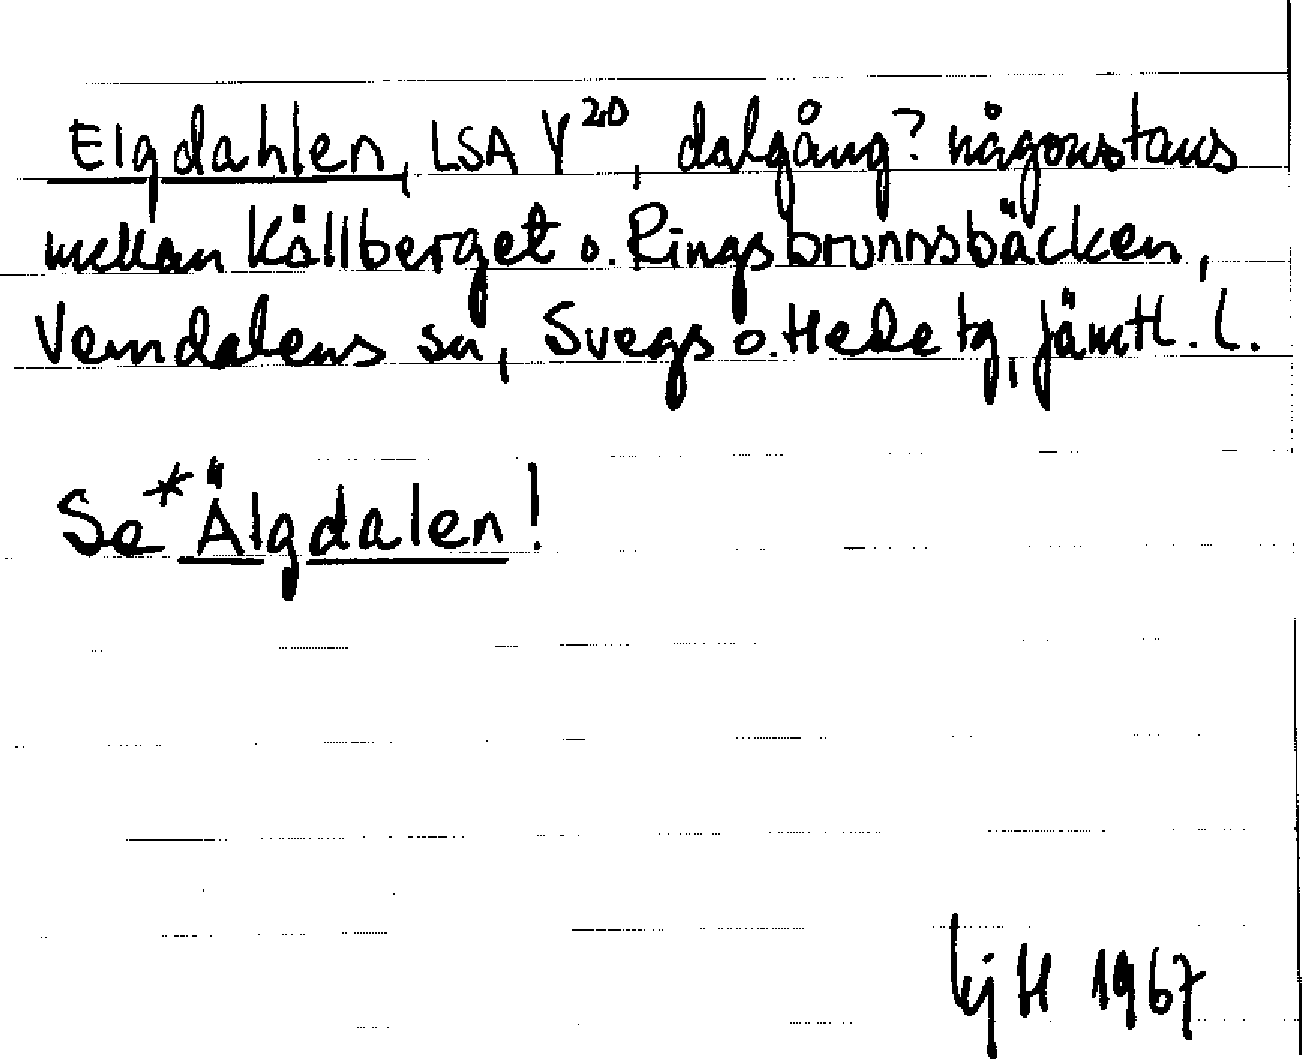 Elgdahlen, LSA Y²⁰, dalgång? någonstans
mellan Källberget o. Ringsbrunnsbäcken,
Vemdalens sn, Svegs o. Hede tg, Jämtl. l.
Se *Älgdalen!
LjH 1967